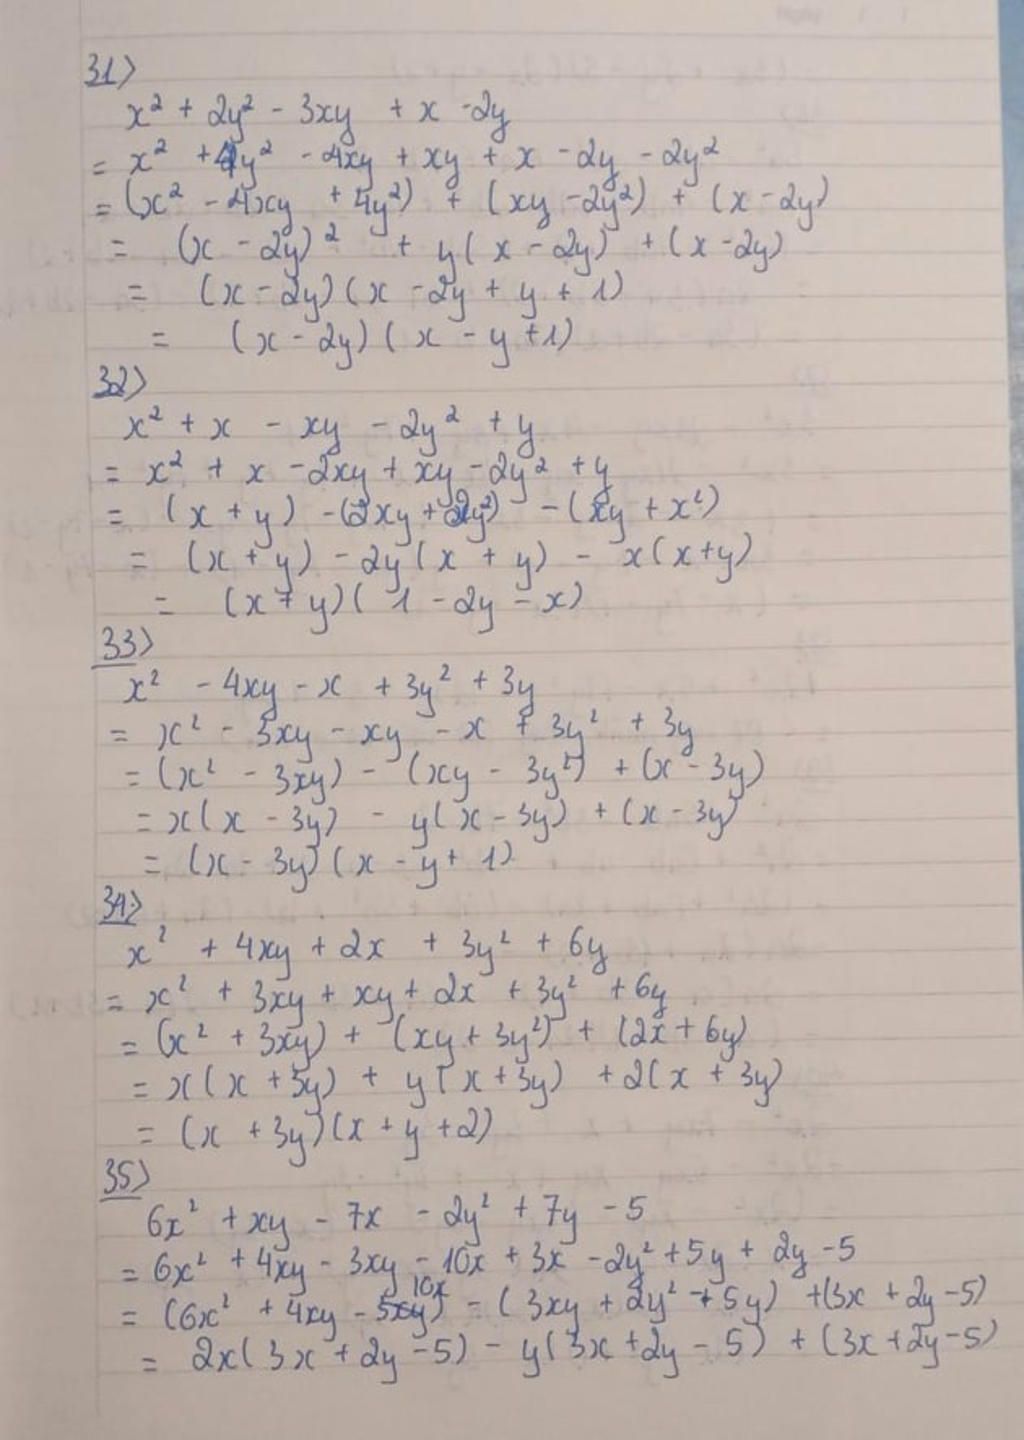 31>
x² + 2y² - 3xy + x - 2y
= x² + 4y² - 4xy + xy + x - 2y - 2y²
= (x² - 4xy + 4y²) + (xy - 2y²) + (x - 2y)
= (x - 2y)² + y(x - 2y) + (x - 2y)
= (x - 2y)(x - 2y + y + 1)
= (x - 2y)(x - y + 1)
32>
x² + x - xy - 2y² + y
= x² + x - 2xy + xy - 2y² + y
= (x + y) - (2xy + 2y²) - (xy + x²)
= (x + y) - 2y(x + y) - x(x + y)
= (x + y)(1 - 2y - x)
33>
x² - 4xy - x + 3y² + 3y
= x² - 3xy - xy - x + 3y² + 3y
= (x² - 3xy) - (xy - 3y²) + (x - 3y)
= x(x - 3y) - y(x - 3y) + (x - 3y)
= (x - 3y)(x - y + 1)
34>
x² + 4xy + 2x + 3y² + 6y
= x² + 3xy + xy + 2x + 3y² + 6y
= (x² + 3xy) + (xy + 3y²) + (2x + 6y)
= x(x + 3y) + y(x + 3y) + 2(x + 3y)
= (x + 3y)(x + y + 2)
35>
6x² + xy - 7x - 2y² + 7y - 5
= 6x² + 4xy - 3xy - 10x + 3x - 2y² + 5y + 2y - 5
= (6x² + 4xy - 10x) - (3xy + 2y² - 5y) + (3x + 2y - 5)
= 2x(3x + 2y - 5) - y(3x + 2y - 5) + (3x + 2y - 5)